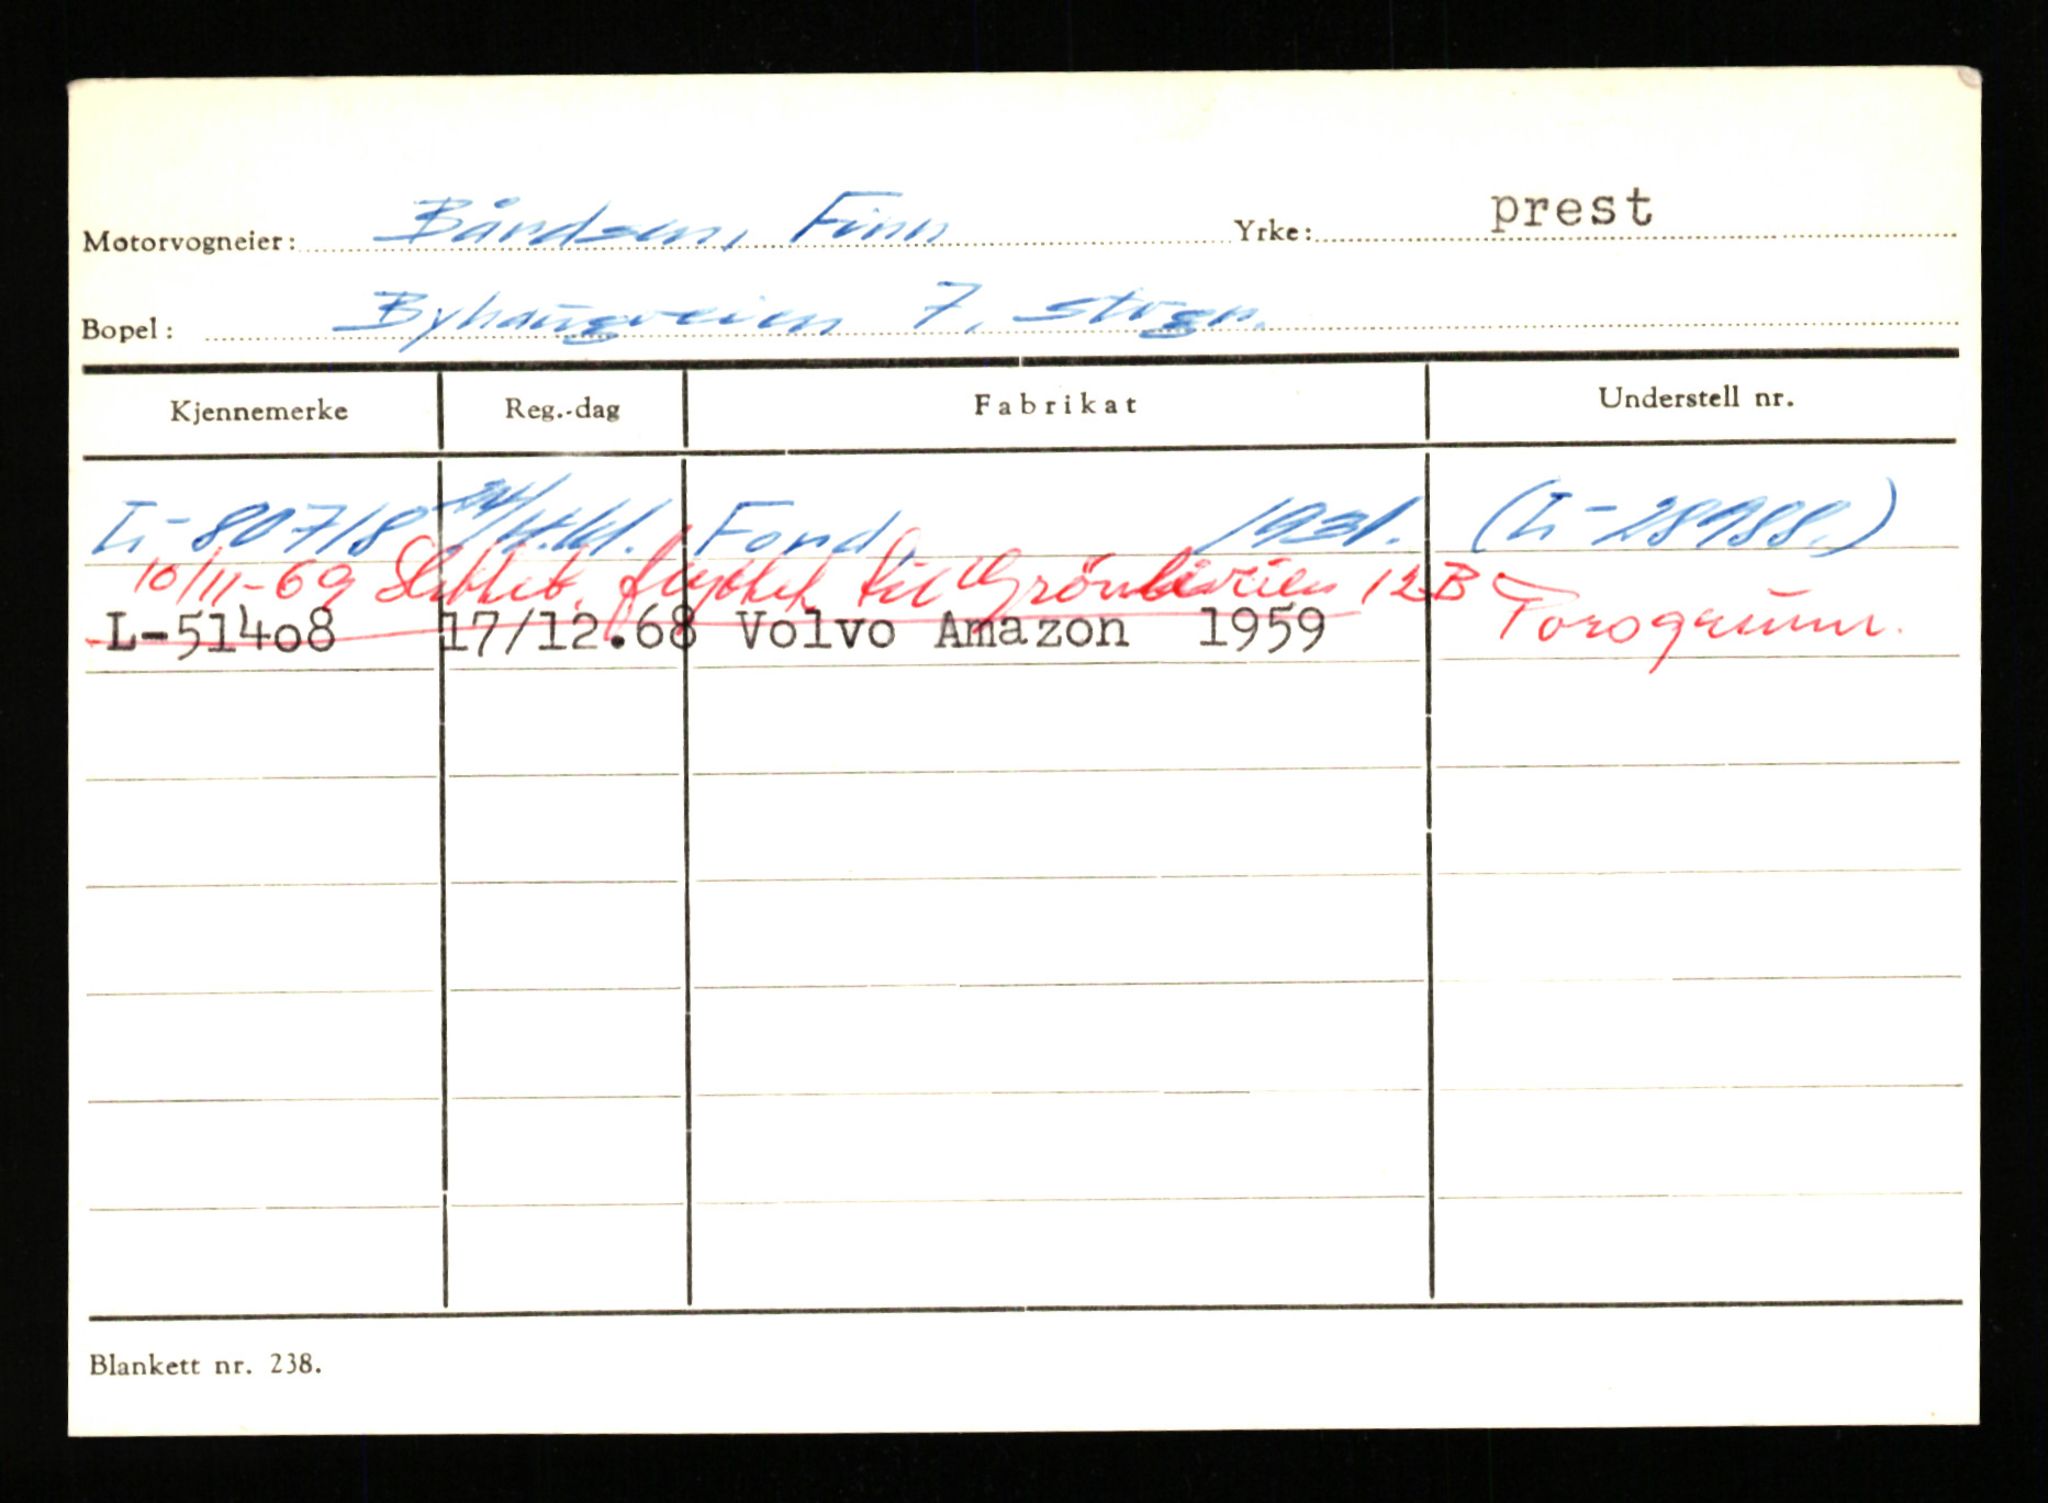 Motorvogneier: Bårdsen, Finn Yrke: prest
Bopel: Byhaugveien 7, Stvgr.
Kjennemerke Reg.-dag Fabrikat Understell nr.
L-80718 Ford 1931. (L-28988.)
10/11-69 Slettet, flyttet til Grönliveien 12B Porsgrunn.
L-51408 17/12.68 Volvo Amazon 1959
Blankett nr. 238.